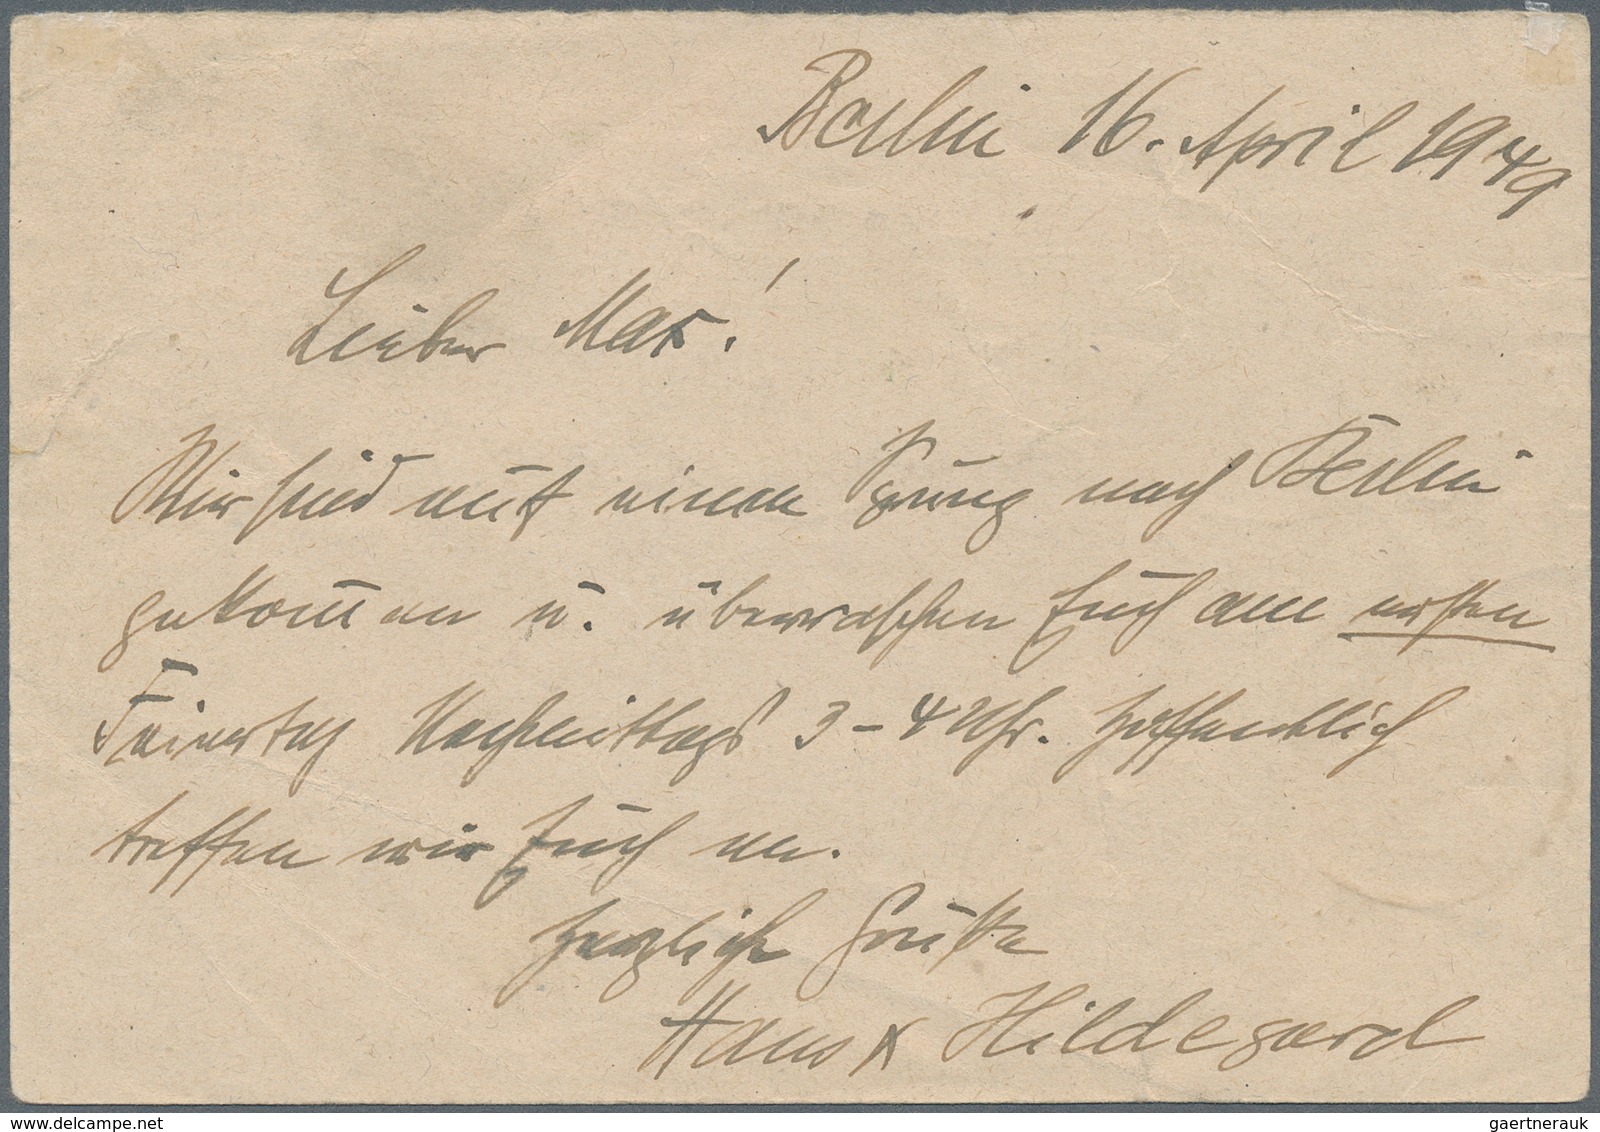 Berlin 16. April 1949
Lieber Max!
Wir sind auf einen Sprung nach Berlin
gekom̅en u. überraschen Euch am ersten
Feiertag Nachmittags 3-4 Uhr. Hoffentlich
treffen wir Euch an.
Herzliche Grüße
Hans & Hildegard
delcampe.net
gaertnerauk